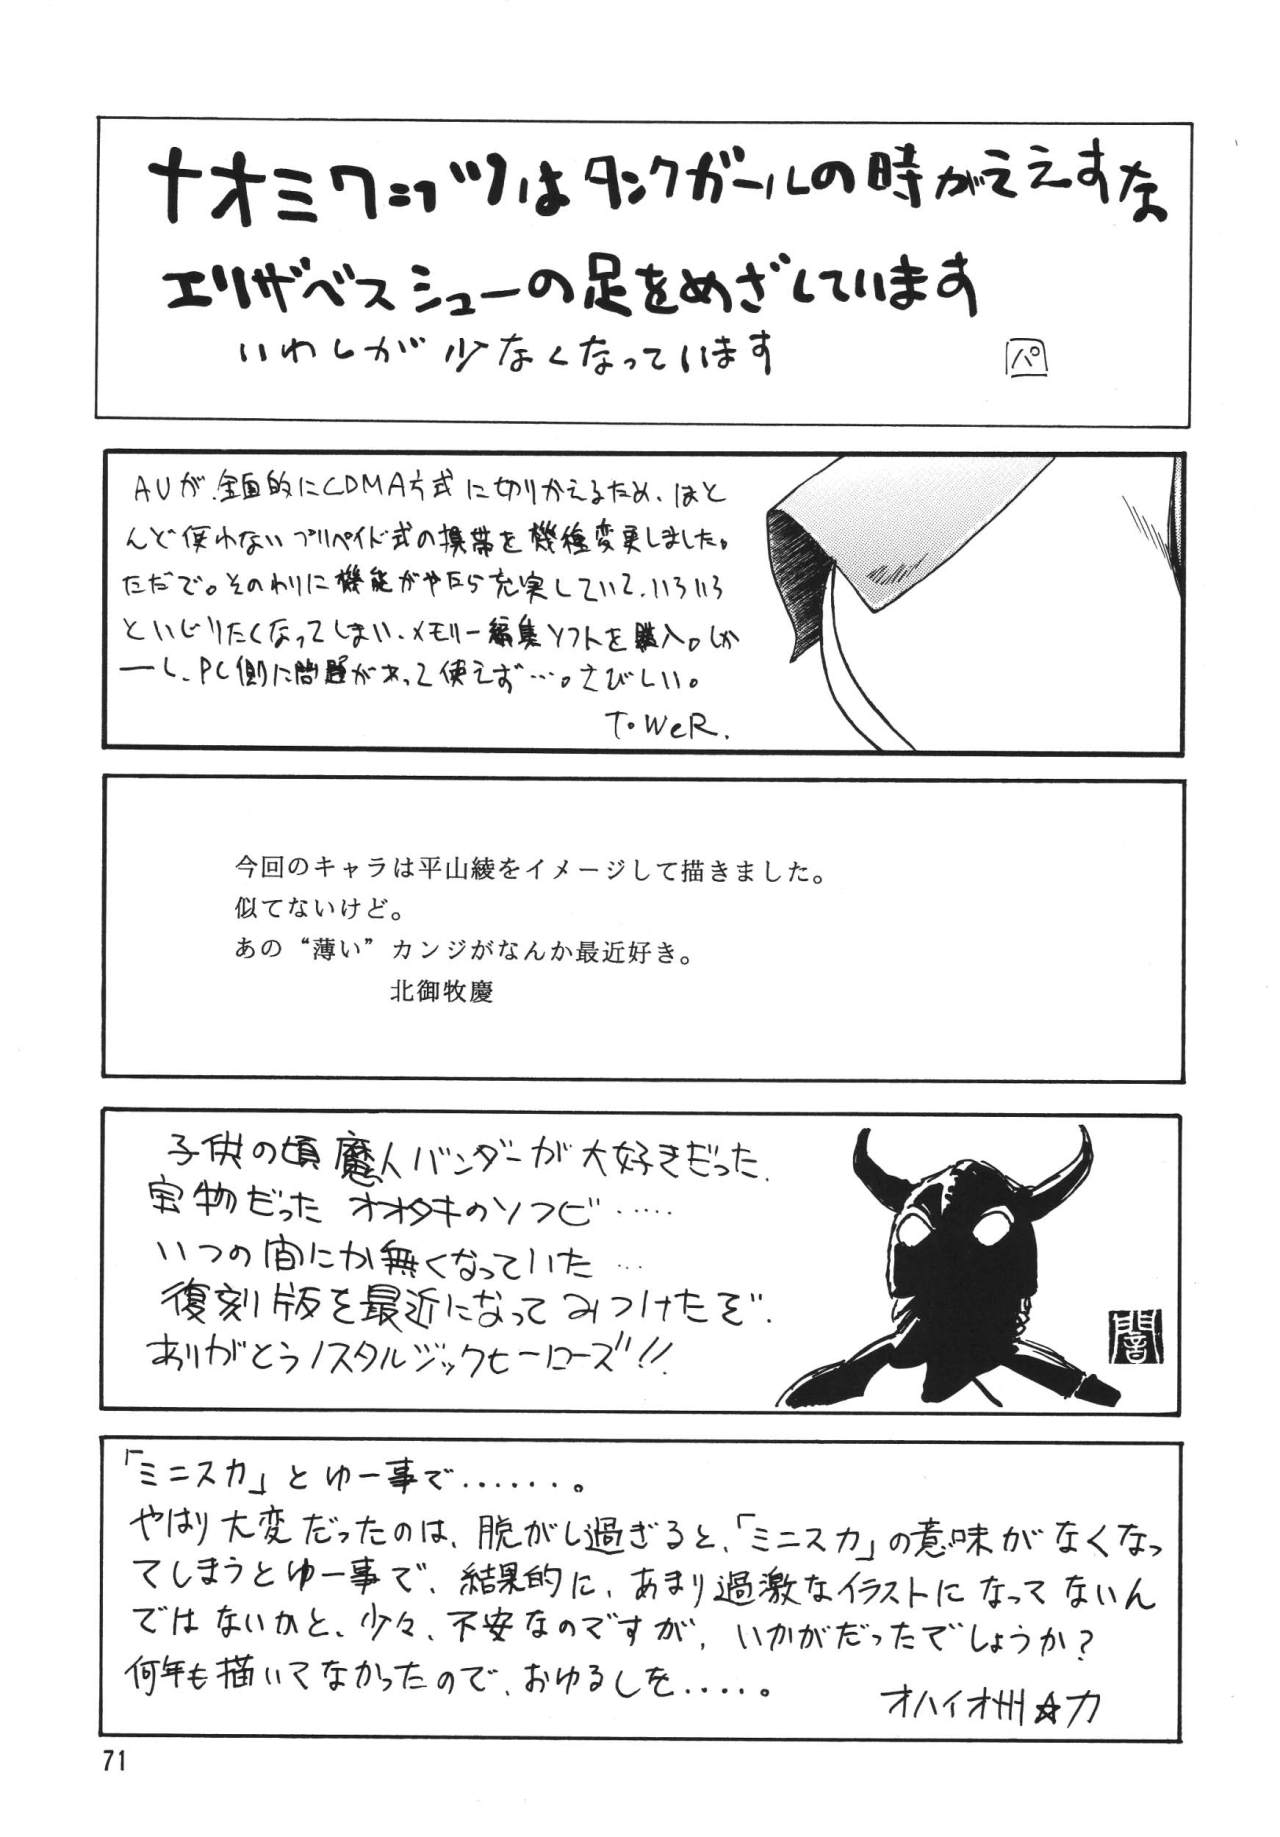 ナオミワッツはタンクガールの時がええすな
エリザベスシューの足をめざしています
いわしが少なくなっています
パ
AUが、全面的にCDMA方式に切りかえるため、ほと
んど使わないプリペイド式の携帯を機種変更しました。
ただで。そのわりに機能がやたら充実していて、いろいろ
といじりたくなってしまい、メモリー編集ソフトを購入。しか
ーし、PC側に問題があって使えず…。さびしい。
T.WeR.
今回のキャラは平山綾をイメージして描きました。
似てないけど。
あの“薄い”カンジがなんか最近好き。
北御牧慶
子供の頃魔人バンダーが大好きだった.
宝物だったオオタキのソフビ・・・・・
いつの間にか無くなっていた...
復刻版を最近になってみつけたぞ.
ありがとうノスタルジックヒーローズ!!
闇
「ミニスカ」とゆー事で......。
やはり大変だったのは、脱がし過ぎると、「ミニスカ」の意味がなくなっ
てしまうとゆー事で、結果的に、あまり過激なイラストになってないん
ではないかと、少々、不安なのですが、いかがだったでしょうか?
何年も描いてなかったので、おゆるしを....。
オハイオ州☆力
71